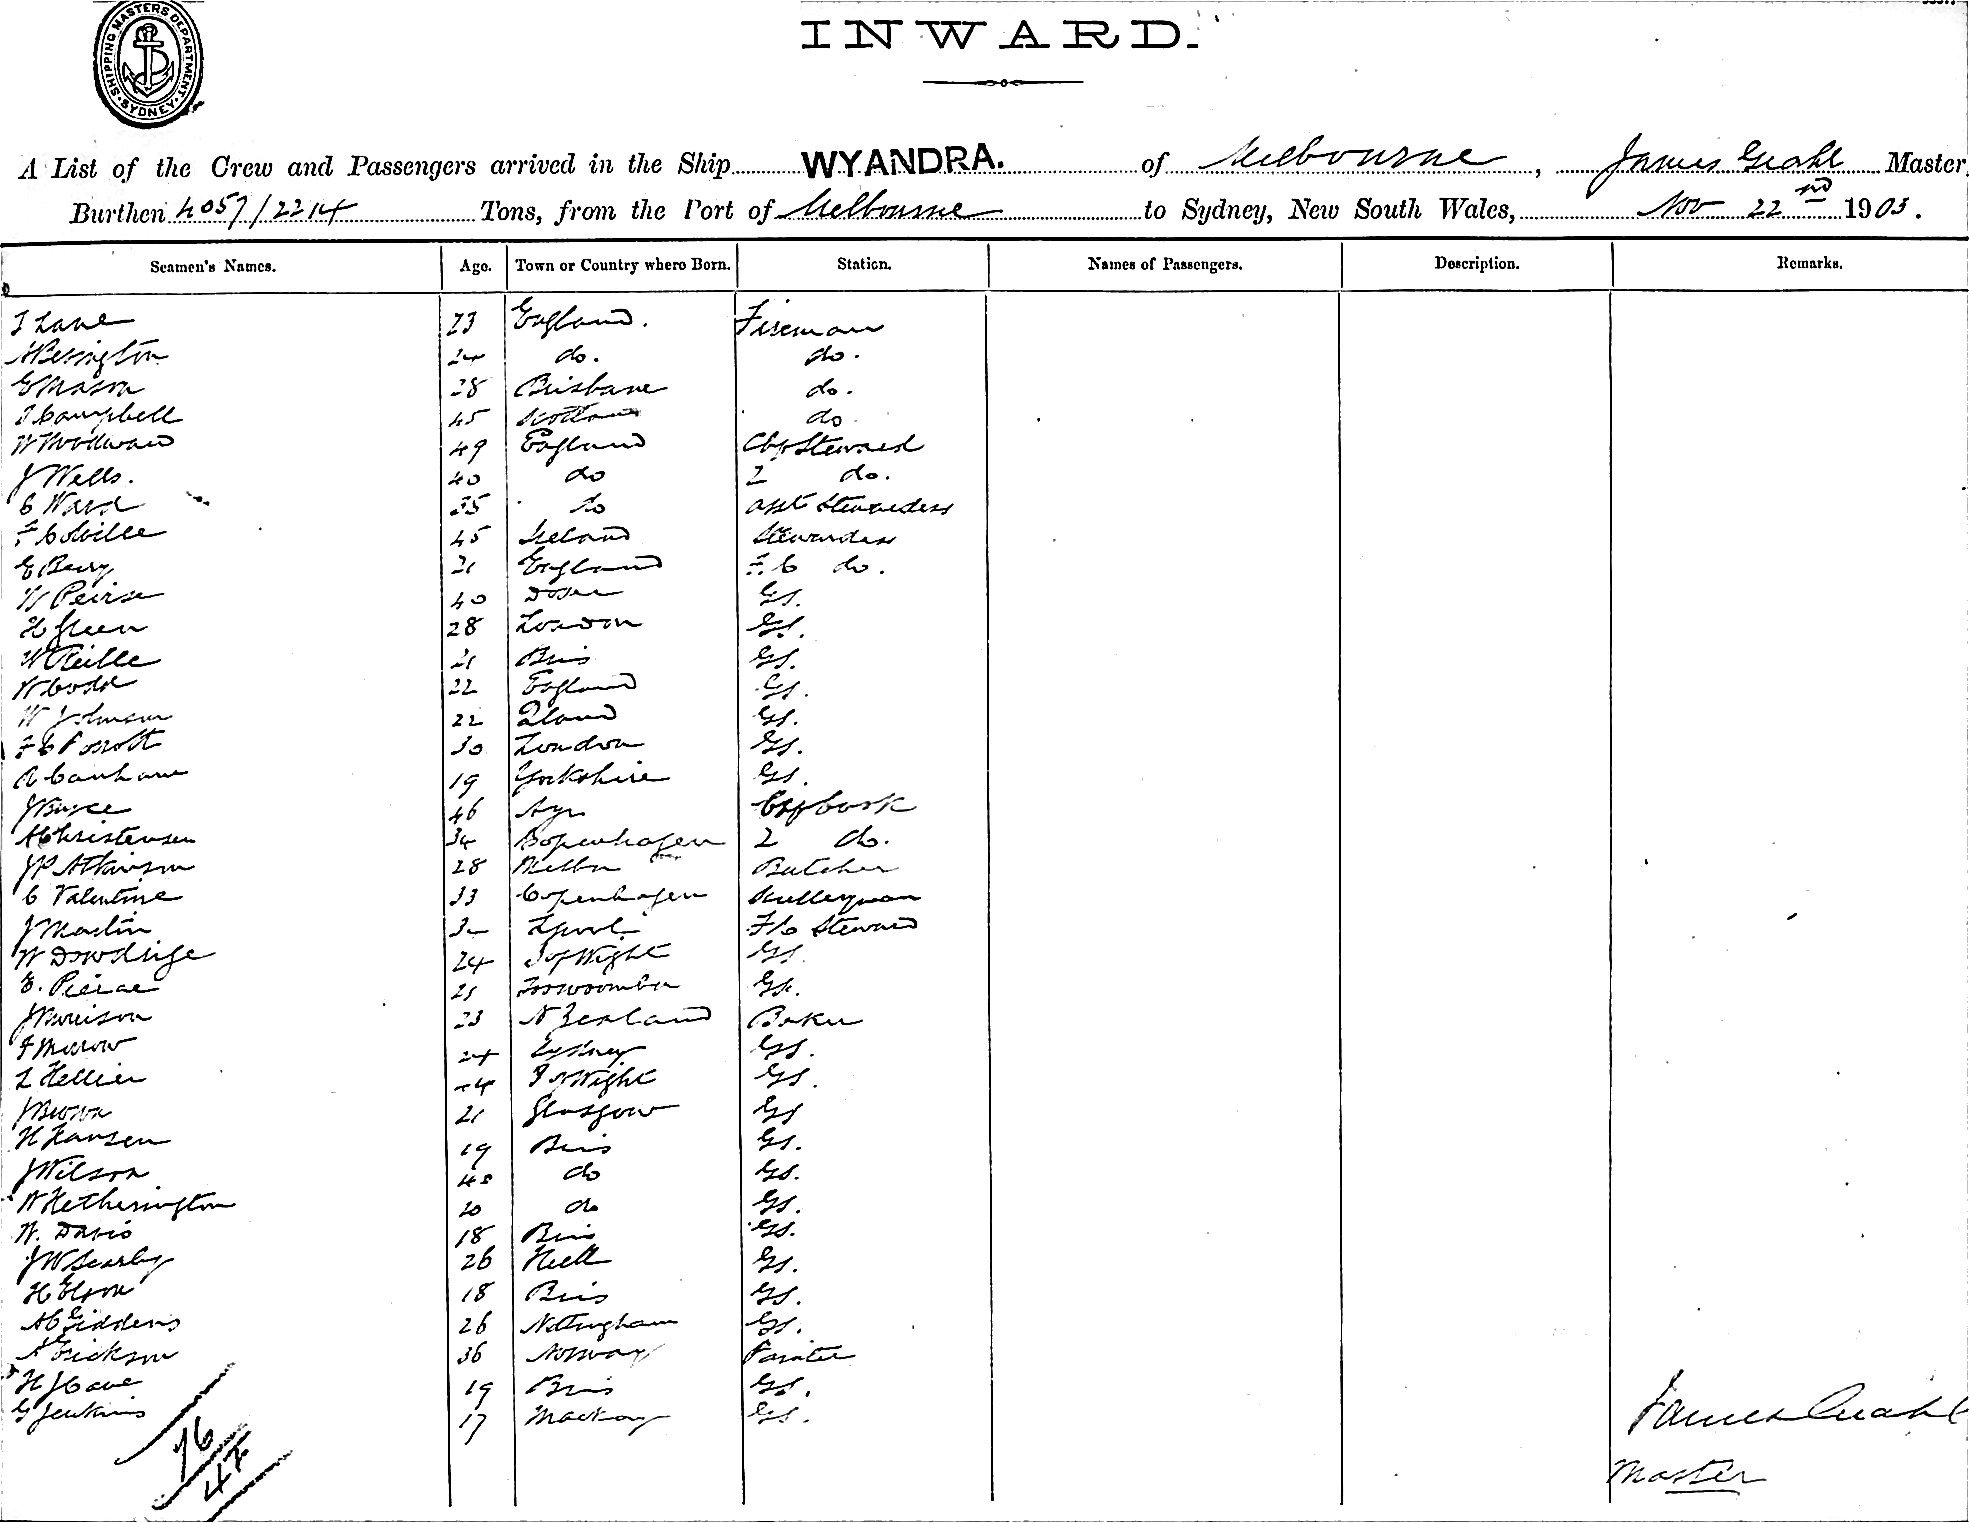 SHIPPING MASTERS DEPARTMENT SYDNEY
INWARD.
A List of the Crew and Passengers arrived in the Ship WYANDRA. of Melbourne, James Master
Burthen 4057/2214 Tons, from the Port of Melbourne to Sydney, New South Wales, Nov 22nd 1903.
Seamen's Names. Age. Town or Country where Born. Station. Names of Passengers. Description. Remarks.
Lane 23 England. Fireman
24 do. do.
E Mason 28 Brisbane do.
Campbell 45 Scotland do
W Woodward 49 England Steward
J Wells. 40 do 2 do.
C Ward 35 do asst Stewardess
F Colville 45 Ireland Stewardess
E Berry 21 England F.C do.
W Peirse 40 Dover GS.
H Green 28 London GS.
W 21 Bris GS.
W Codd 22 England GS.
W Johnson 22 Qland GS.
F C 30 London GS.
A Canham 19 Yorkshire GS.
J Bryce 46 Ayr Cook
A Christensen 34 Copenhagen 2 do.
J P Atkinson 28 Melbn Butcher
C Valentine 33 Copenhagen Sculleryman
J Martin Lpool F/C Steward
W Dowdinge 24 I of Wight GS.
E. Peirce 21 Toowoomba GS.
J Morrison 23 N Zealand Baker
Morrow 24 Sydney GS.
L Hellier 24 I of Wight GS.
J Brown 21 Glasgow GS
H Hansen 19 Bris GS.
J Wilson 40 do GS.
W Hetherington 20 do GS.
W. Davis 18 Bris GS.
J W Searby 26 Hull GS.
H Elson 18 Bris GS.
A C Giddens 26 Nottingham GS.
A Erickson 36 Norway Painter
H J Cave 19 Bris GS.
G Jenkins 17 Mackay GS.
James
Master
76
47